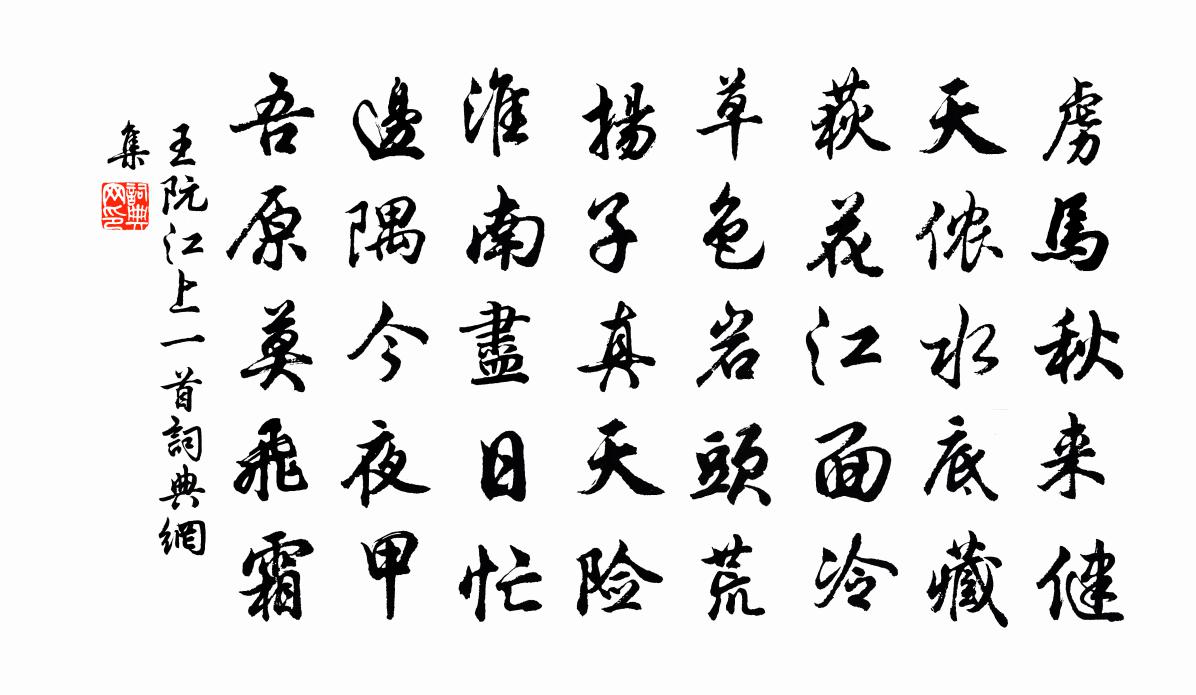 虜馬秋来健
天侬水底藏
荻花江面冷
草色岩頭荒
揚子真天险
淮南盡日忙
邊隅今夜甲
吾原莫飛霜
王阮江上一首詞典網
集
詞典
网印